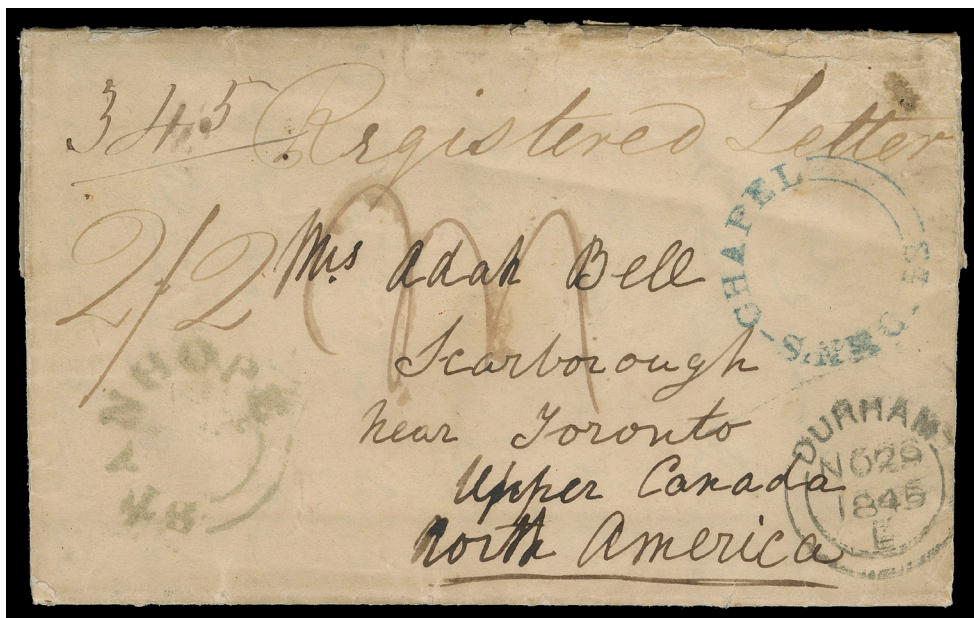 345 Registered Letter
2/2
Mrs Adah Bell
Scarborough
near Toronto
Upper Canada
North America
CHAPEL
ST JOHN'S
ANHOPE
DURHAM
NO 29
1845
E